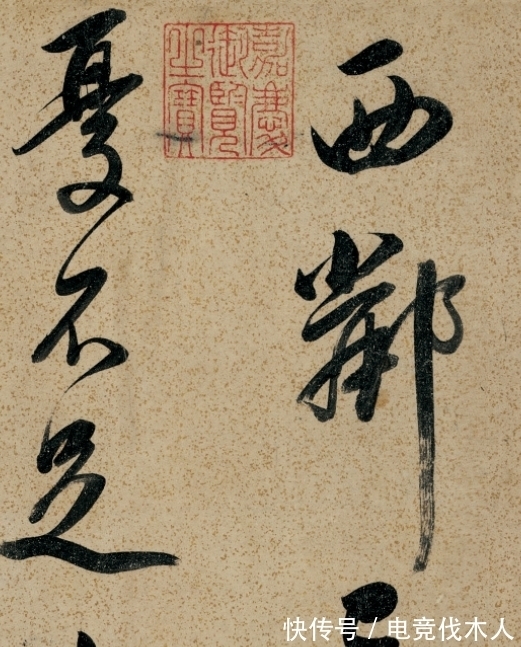 西鄰
憂不足
嘉慶
御覽
之寶
快传号 / 电竞伐木人